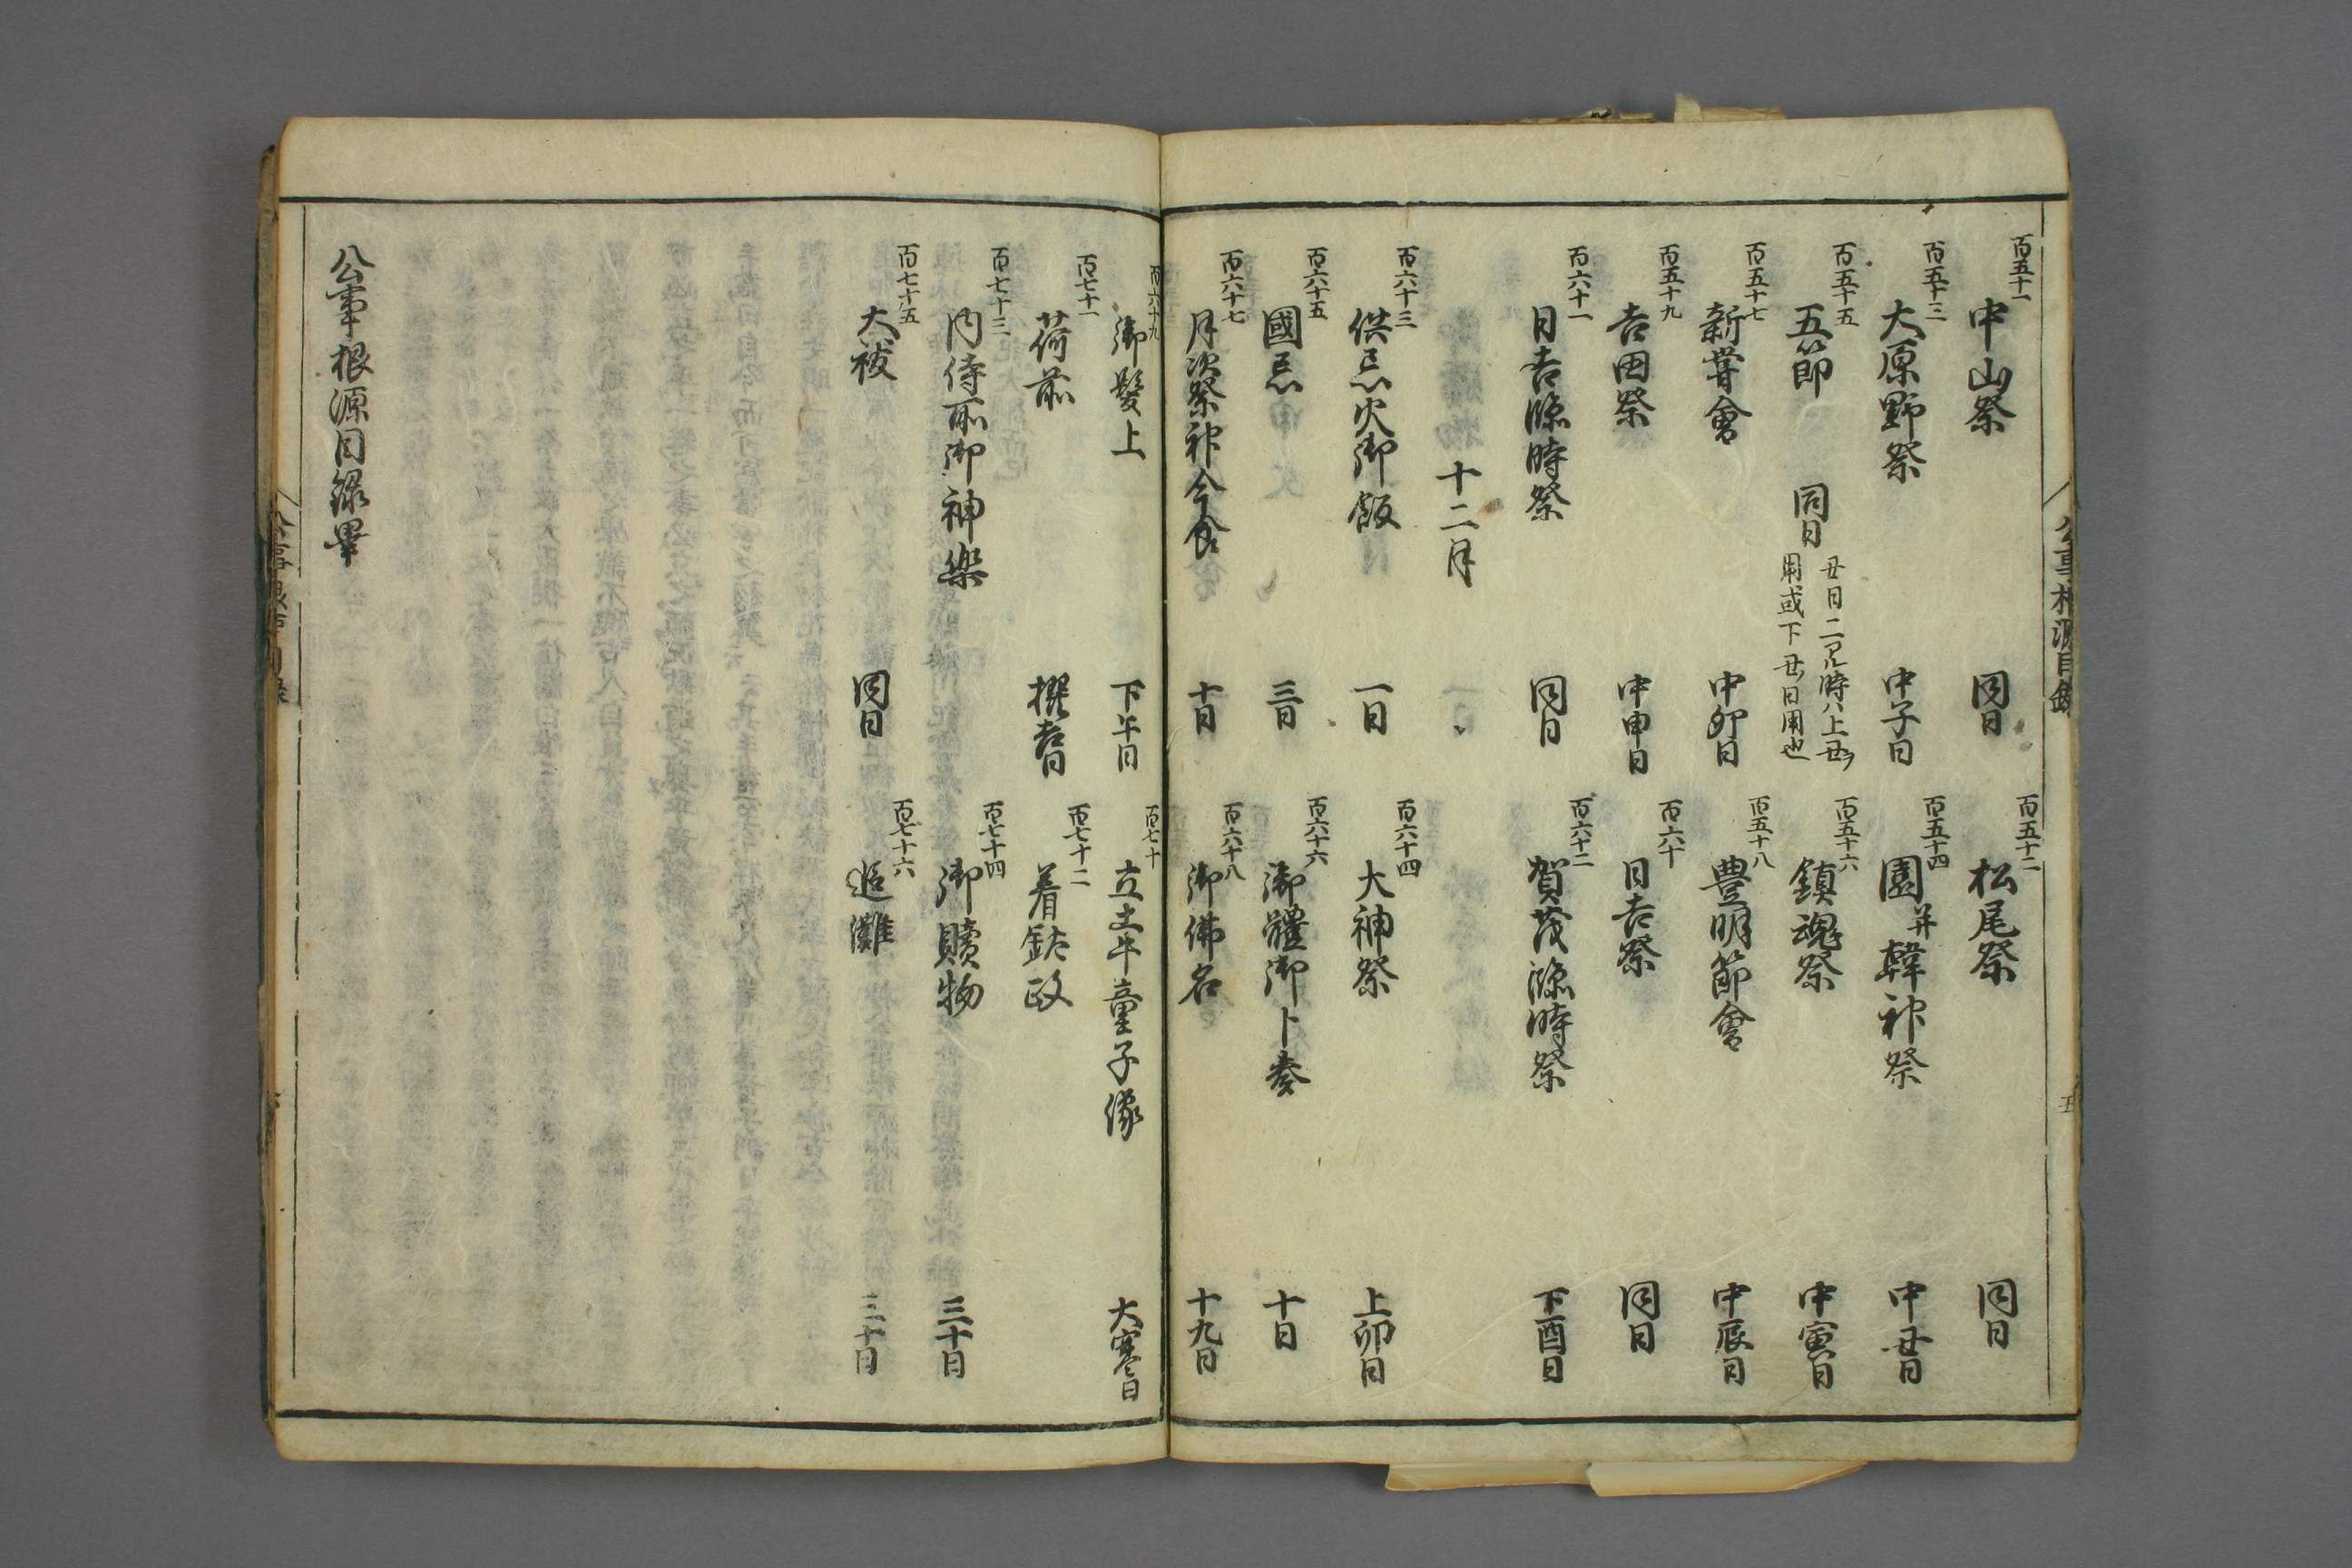 百五十一 中山祭 同日 百五十二 松尾祭 同日
百五十三 大原野祭 中子日 百五十四 園并韓神祭 中丑日
百五十五 五節 同日 丑日二アル時ハ上丑ヲ用或下丑日用也 百五十六 鎮魂祭 中寅日
百五十七 新甞會 中卯日 百五十八 豊明節會 中辰日
百五十九 吉田祭 中申日 百六十 日吉祭 同日
百六十一 日吉臨時祭 同日 百六十二 賀茂臨時祭 下酉日
十二月
百六十三 供忌火御飯 一日 百六十四 大神祭 上卯日
百六十五 國忌 三日 百六十六 御體御卜奏 十日
百六十七 月次祭神今食 十日 百六十八 御佛名 十九日
百六十九 御髪上 下午日 百七十 立土牛童子像 大寒日
百七十一 荷前 撰吉日 百七十二 着鈦政
百七十三 内侍所御神樂 百七十四 御贖物 三十日
百七十五 大祓 同日 百七十六 追儺 三十日
公事根源目録畢
公事根源目録